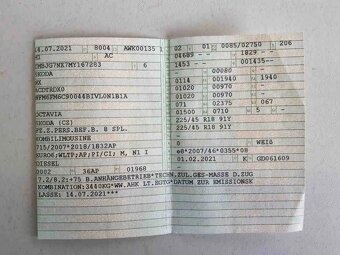 14.07.2021 8004 AWK00135 1
M1 AC
TMBJG7NX7MY167283 6
SKODA
NX
ACDTRDX0
OCTAVIA
SKODA (CZ)
FZ.Z.PERS.BEF.B. 8 SPL.
KOMBILIMOUSINE
715/2007*2018/1832AP
EURO6;WLTP;AP;PI/CI; M, N1 I
DIESEL
0002 36AP 01968
02 01 0085/02750 206
04689 -- 1829 --
1453 -- 001435--
-- 00080 --
0114 001940 1940
01020 00970 --
01020 00970 --
071 02375 067
01500 0710 5 --
225/45 R18 91Y
225/45 R18 91Y
WEIß
0
e8*2007/46*0355*08
01.02.2021 K GD061609
7.2/8.2:+75 B.ANHÄNGEBETRIEB*TECHN.ZUL.GES-MASSE D.ZUG
KOMBINATION:3440KG*WW.AHK LT.EGTG*DATUM ZUR EMISSIONSK
LASSE: 14.07.2021***